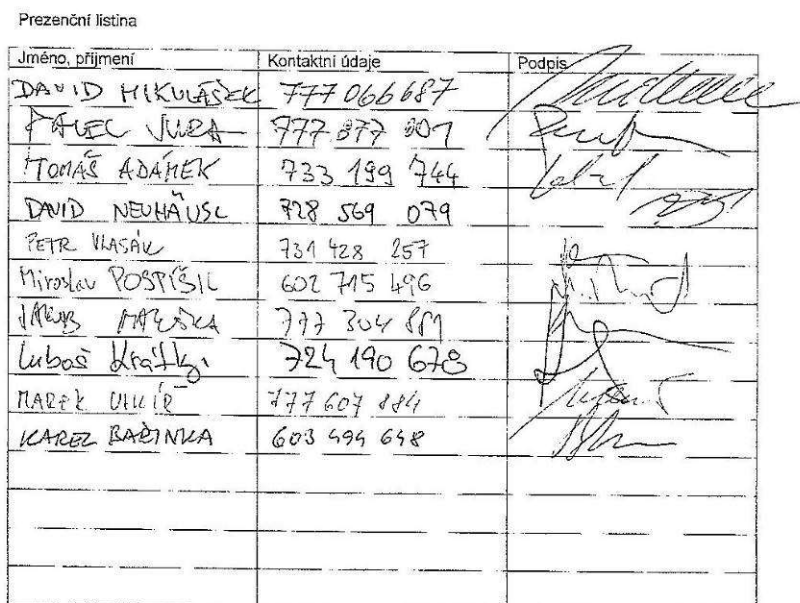 Prezenční listina
Jméno, příjmení Kontaktní údaje Podpis
DAVID MIKULÁŠEK 777 066 687
PAVEL JURA 777 877 901
TOMÁŠ ADÁMEK 733 199 744
DAVID NEUHÄUSL 728 569 079
PETR VLASÁK 731 428 257
Miroslav POSPÍŠIL 602 715 496
JAKUB 777 304 881
Luboš Krátký 724 190 678
MAREK 777 607 884
KAREL BAŘINKA 603 494 648